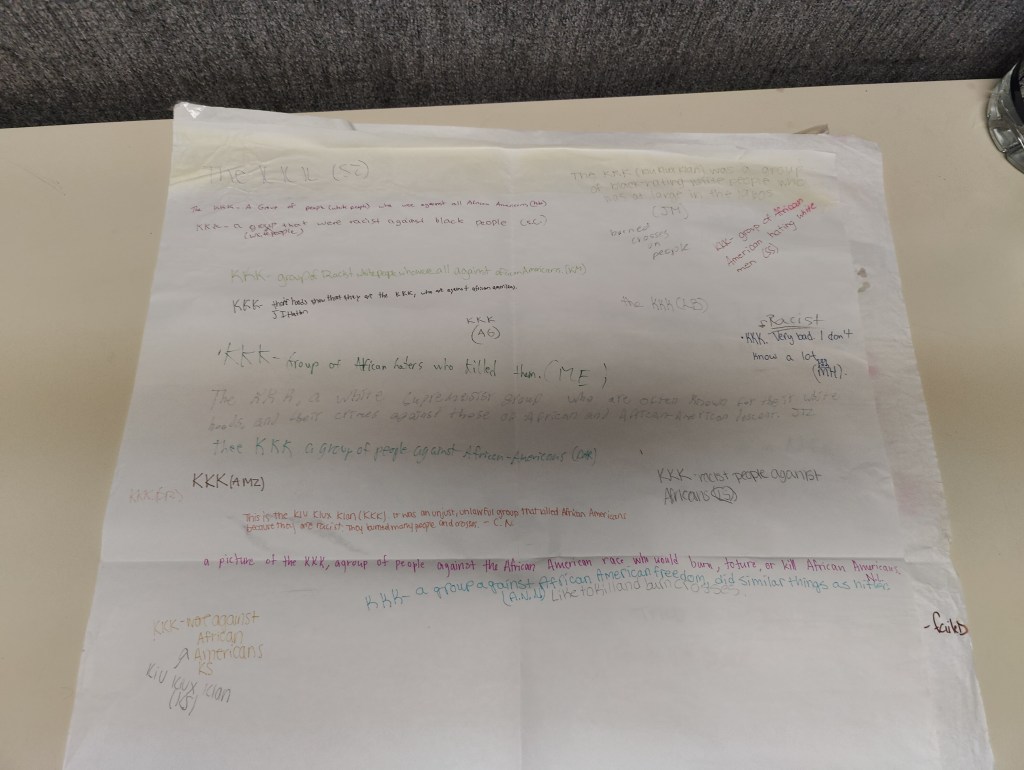 The KKK (SZ)
The KKK (Ku Klux Klan) was a group
of white people who
(JM)
The KKK - A Group of people (white people) who was against all African Americans
KKK - a group that were racist against black people
(white people)
burned
crosses
on
people
KKK - group of African
American hating white
men (SS)
KKK - group of Racist white people who were all against African Americans.
KKK their hoods show that they are the KKK, who are against african americans.
the KKK
KKK
(AG)
Racist
• KKK. Very bad. I don't
know a lot
(MH).
• KKK - Group of African haters who killed them. (ME)
The KKK, a white supremacist group who are often known for their white
hoods and their crimes against those of African and African-American
thee KKK a group of people against African-Americans
KKK - most people against
Africans
KKK (AMZ)
This is the Klu Klux Klan (KKK). It was an unjust, unlawful group that killed African Americans
because they are racist. They burned many people and crosses. - C.N
a picture of the KKK, agroup of people against the African American race who would burn, toture, or kill African Americans
KKK - a group against African American freedom, did similar things as hitler.
(A.N.) Like to kill and burn crosses.
KKK - Not against
African
Americans
KS
Klu Klux Klan
(KS)
- failed